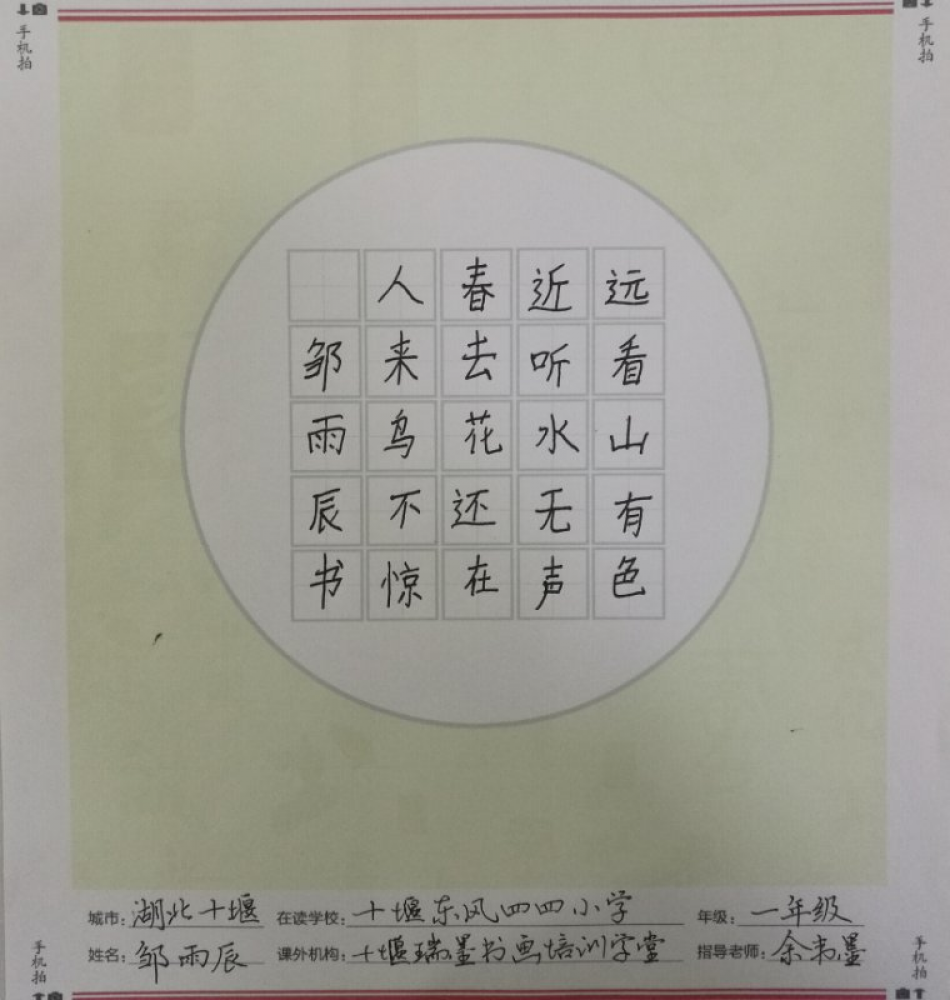 手机拍
手机拍
远看山有色
近听水无声
春去花还在
人来鸟不惊
邹雨辰书
城市:湖北十堰 在读学校:十堰东风四四小学 年级:一年级
姓名:邹雨辰 课外机构:十堰瑞墨书画培训学堂 指导老师:余书墨
手机拍
手机拍